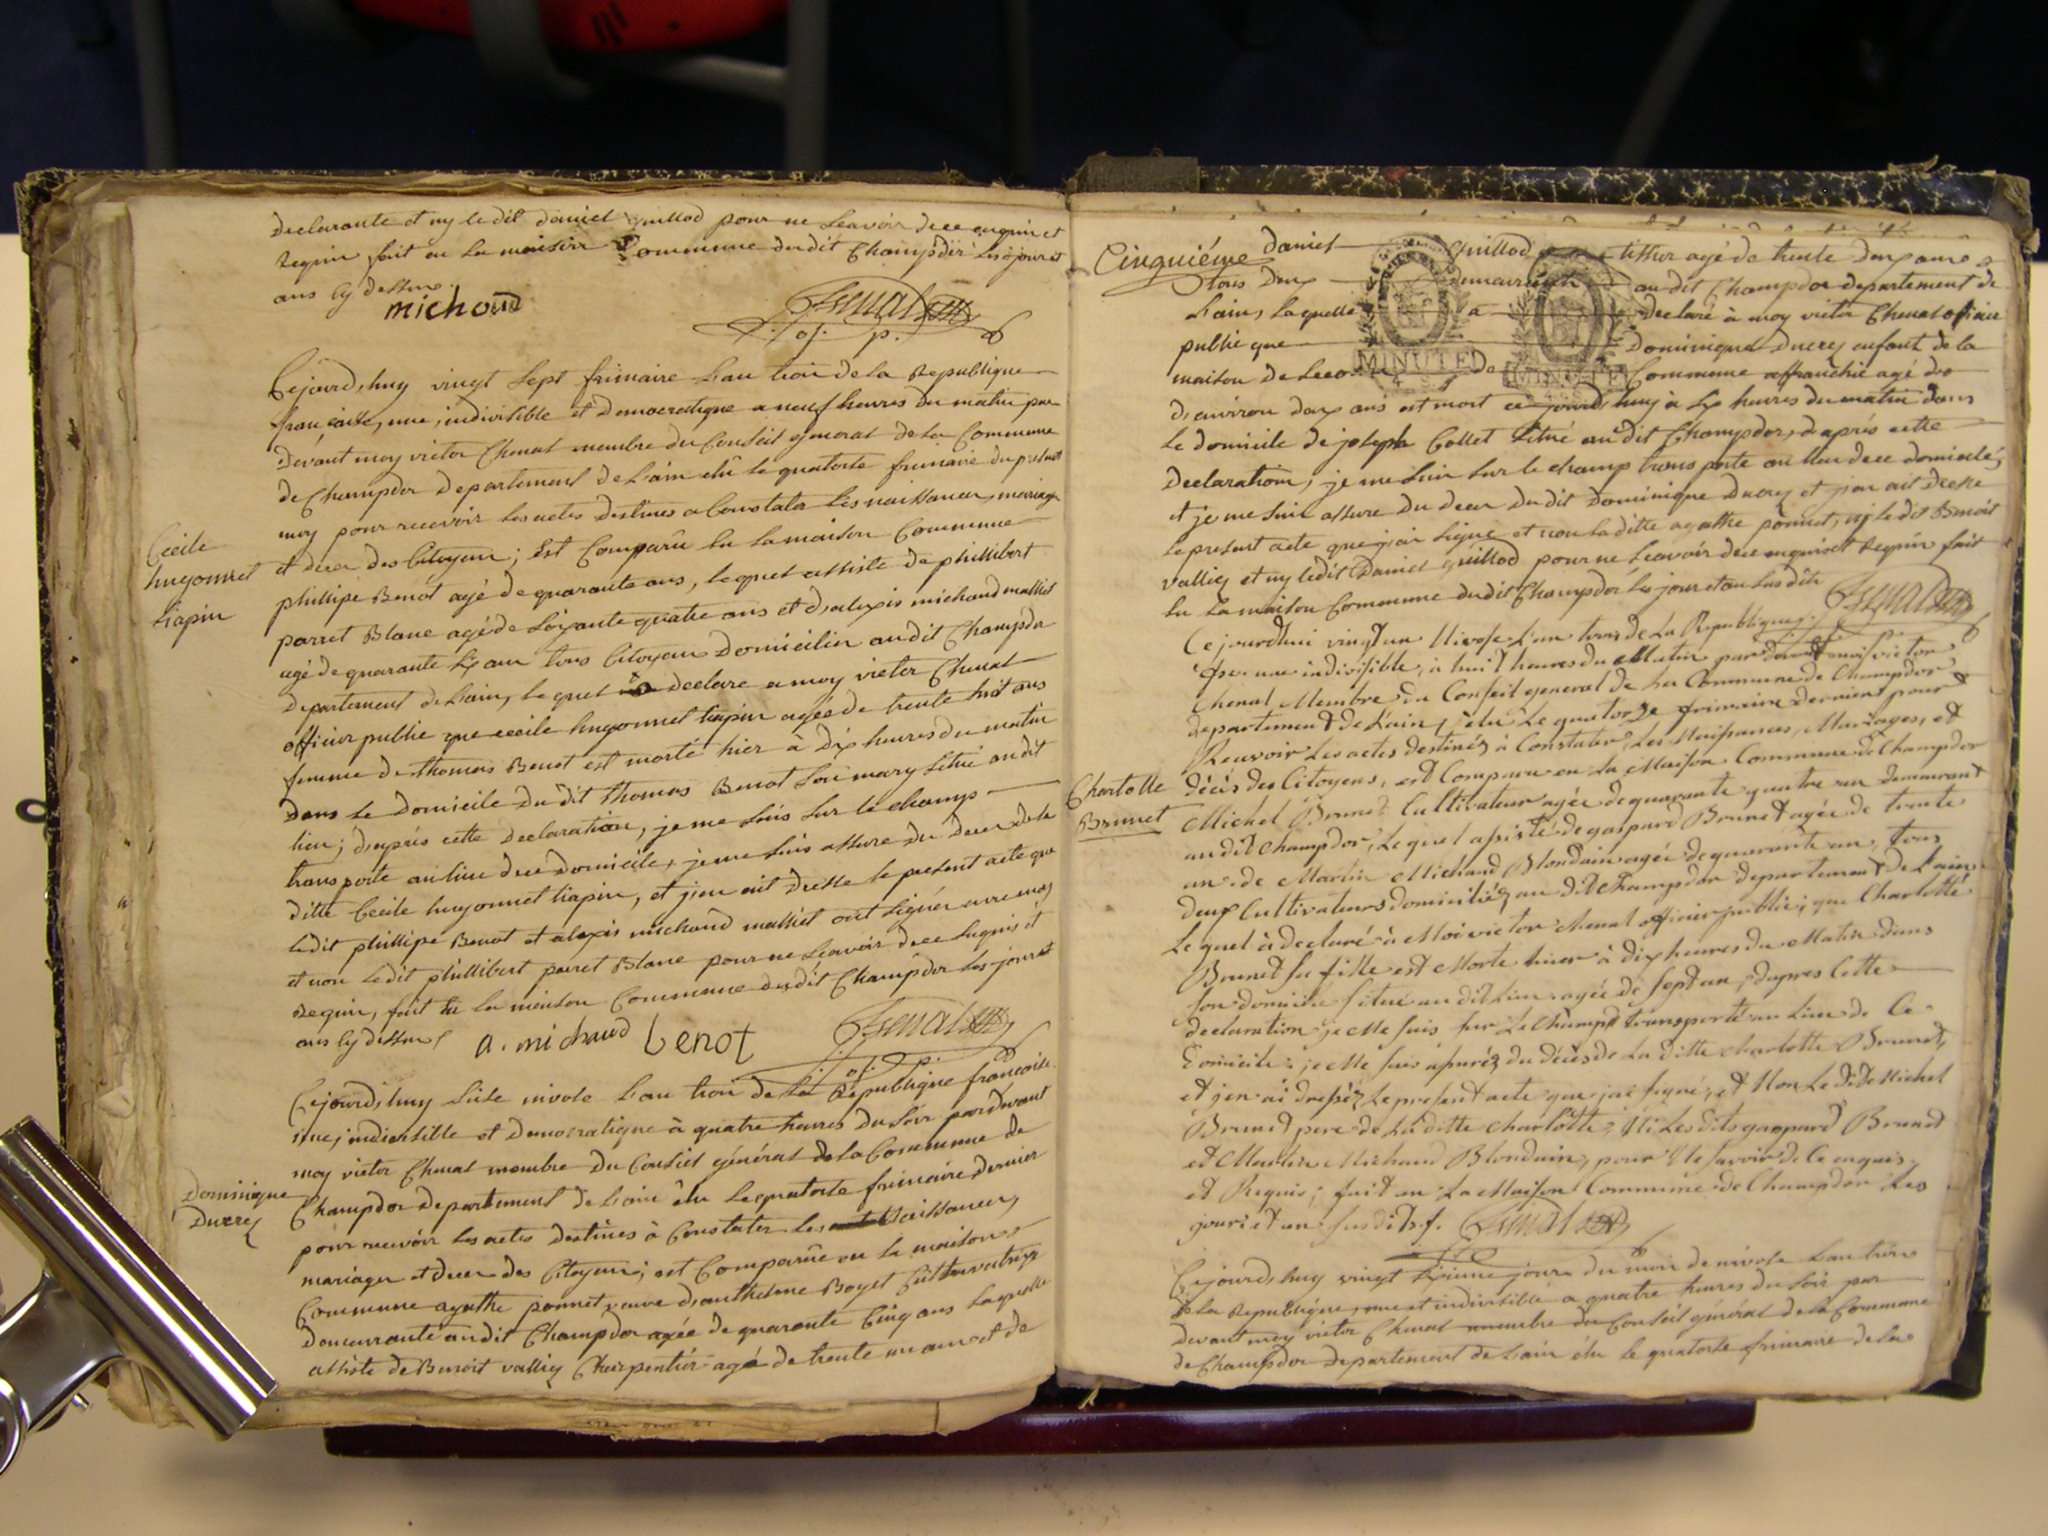 declarante et ny le dit daniel guillod pour ne scavoir de ce enquis et
requis, fait en la maison Commune du dit Champdor les jour et
ans cy dessus.
michoud
Chenal
of. p.
Cejourd,huy vingt sept frimaire L'an troi de la Republique
francaise, une, indivisible et Democratique a neuf heures du matin par
devant moy victor Chenal membre du Conseil general de la Commune
de Champdor departement de L'ain elû le quatorse frimaire du present
moy pour recevoir les actes destines a Constater les naissances, mariages
et deces des Citoyens; Est Comparûe en la maison Commune
Cecile
hugonnet
tiapin
phillipe Benot agé de quarante ans, lequel assisté de phillibert
parret Blanc agé de soixante quatre ans et d'alexis michaud malliet
agé de quarante six ans tous Citoyens Domicilies au dit Champdor
departement de L'ain, lequel a declare a moy victor Chenal
officier public que cecile hugonnet tiapin agée de trente huit ans
femme de thomas Benot est morte hier à dix heures du matin
dans le domicile du dit thomas Benot son mary situé au dit
lieu; d'après cette declaration, je me suis sur le champ
transporte au lieu de ce domicile, je me suis assure du deces de la
ditte Cecile hugonnet tiapin, et j'en ait dresse le present acte que
le dit phillipe Benot et alexis michaud malliet ont signés avec moy
et non le dit phillibert parret Blanc pour ne scavoir de ce enquis et
requis, fait en la maison Commune du dit Champdor les jour et
ans cy dessus
a. michaud benot
Chenal
of. p.
Cejourd,huy sixte nivose L'an troi de la Republique francoise
une, indivisible et Democratique à quatre heures du soir par devant
moy victor Chenal membre du Conseil général de la Commune de
Dominique
Ducrey
Champdor departement de L'ain élu le quatorse frimaire dernier
pour recevoir les actes destines à Constater les naissances,
mariages et deces des Citoyens; est Comparûe en la maison
Commune agathe ponnet veuve d'anthelme Boget Cultivatrice
demeurante au dit Champdor agée de quarante Cinq ans laquelle
assisté de Benoit valliey Charpentier agé de trente un ans et de
Cinquiéme
daniel guillod tisseur agé de trente deux ans
tous deux demeurants au dit Champdor departement de
L'ain, laquelle a declaré à moy victor Chenal officier
public que Dominique Ducrey enfant de la
maison de Commune affranchie agé de
d'environ deux ans est mort ce jourd,huy à six heures du matin dans
le domicile de joseph Collet situé au dit Champdor, d'après cette
declaration, je me suis sur le champ transporte au lieu de ce domicile,
et je me suis assure du deces du dit Dominique Ducrey et j'en ait dresse
le present acte que j'ai signe et non la ditte agathe ponnet, ny le dit Benoit
valliey et ny le dit Daniel guillod pour ne scavoir de ce enquis et requis fait
en la maison Commune du dit Champdor les jour et an sus dits
MINUTE
MINUTE
Chenal
Ce jourdhui vingt un Nivose L'an trois de la Republique
fse. une indivisible, à huit heures du Matin par devant moi victor
Chenal Membre du Conseil general de la Commune de Champdor
departement de L'ain, élu Le quatorze frimaire dernier pour
Recevoir Les actes destinés à Constater, Les Naissances, Mariages, et
Charlotte
Brunet
décés des Citoyens, est Comparu en La Maison Commune de Champdor
Michel Brunet Cultivateur agée de quarante quatre an demeurant
au dit Champdor, Lequel assisté de gaspard Brunet agée de trente
un de Martin Michaud Blondain agée de quarante un, tous
deux Cultivateurs domiciliés au dit Champdor departement de L'ain
Le quel à declaré à Moi victor Chenal officier public; que Charlotte
Brunet sa fille est Morte hier à dix heures du Matin dans
son domicile situé au dit Lieu agée de Sept an, d'apres Cette
declaration je Me suis sur Le Champ transporté au Lieu de Ce
Domicile; je Me suis assuréz du décès de La ditte Charlotte Brunet,
et j'en ai dresséz Le present acte que j'ai signé; et Non Le dit Michel
Brunet pere de La ditte Charlotte; Ni Les dits gaspard Brunet
et Martin Michaud Blondain, pour Ne savoir de Ce enquis
et Requis; fait en La Maison Commune de Champdor Les
jour et an susdits.
Chenal
Cejourd,huy vingt sixieme jour du mois de nivose L'an trois
de la Republique, une et indivisible a quatre heures du soir par
devant moy victor Chenal membre du Conseil général de la Commune
de Champdor departement de L'ain élu le quatorse frimaire de la